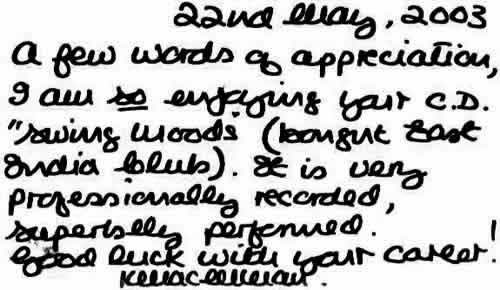 22nd May, 2003
A few words of appreciation,
I am so enjoying your C.D.
"Swing Moods (bought East
India Club). It is very
professionally recorded,
superbly performed.
Good luck with your career!